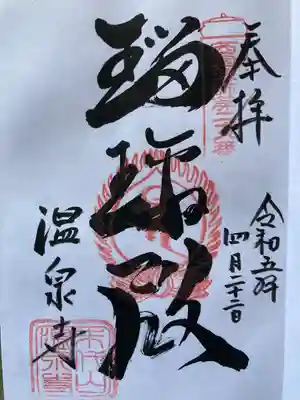 奉拝
令和五年
四月二十二日
瑠璃殿
温泉寺